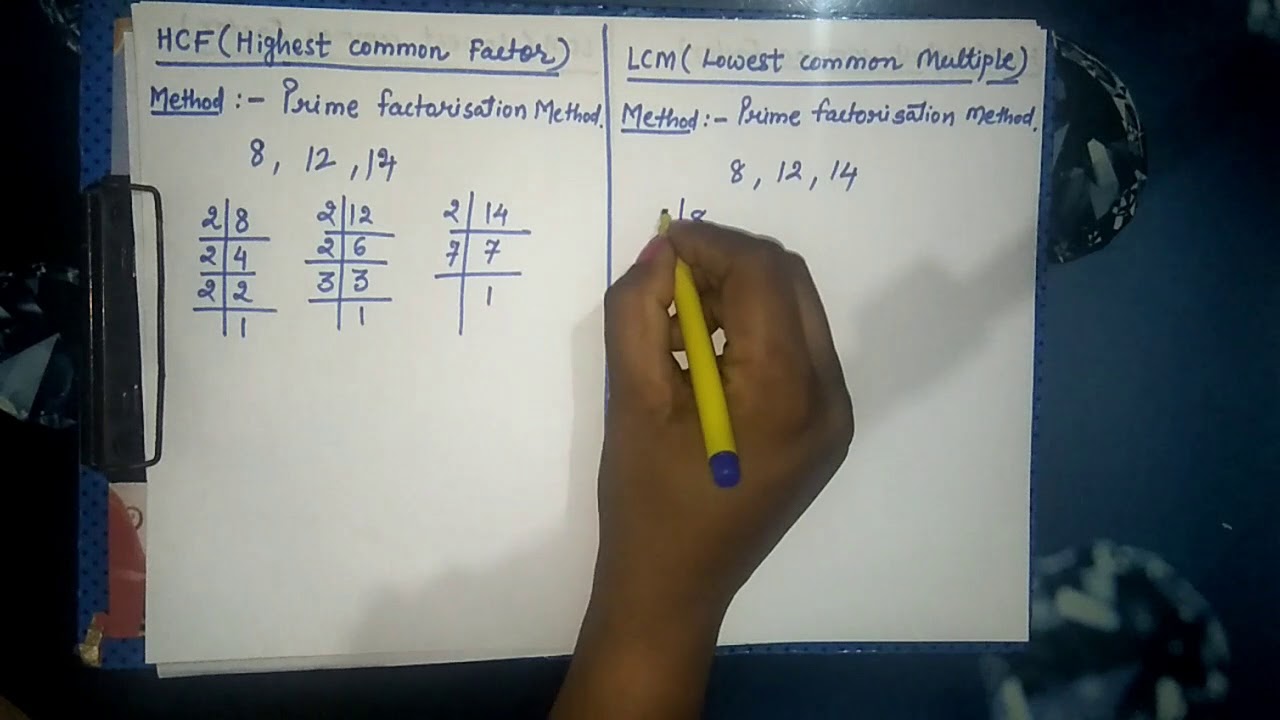 HCF (Highest common Factor)
Method :- Prime factarisation Method.
8, 12, 14
2 | 8
2 | 4
2 | 2
1
2 | 12
2 | 6
3 | 3
1
2 | 14
7 | 7
1
LCM (Lowest common Multiple)
Method :- Prime factorisation Method.
8, 12, 14
8